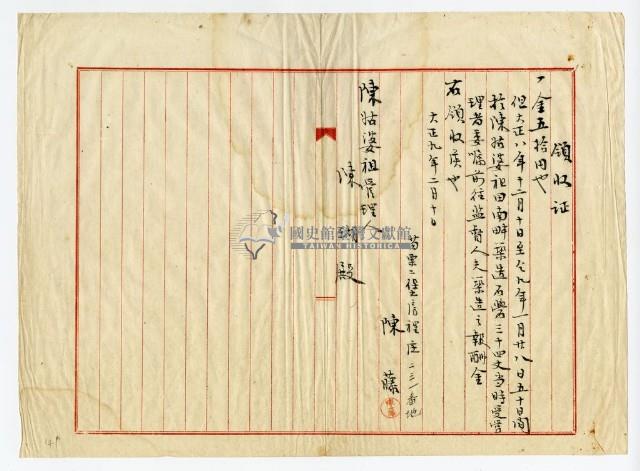 領收証
一金五拾円也
但大正八年十二月十日至仝九年一月廿八日五十日間
於陳姑婆祖田南畔築造石礐三十四丈当時受管
理者委嘱前往監督人夫築造之報酬金
右領收候也
大正九年二月十日
苗栗二堡 二三一番地
陳 藤
陳姑婆祖管理人
陳 殿
國史館臺灣文獻館
TAIWAN HISTORICA